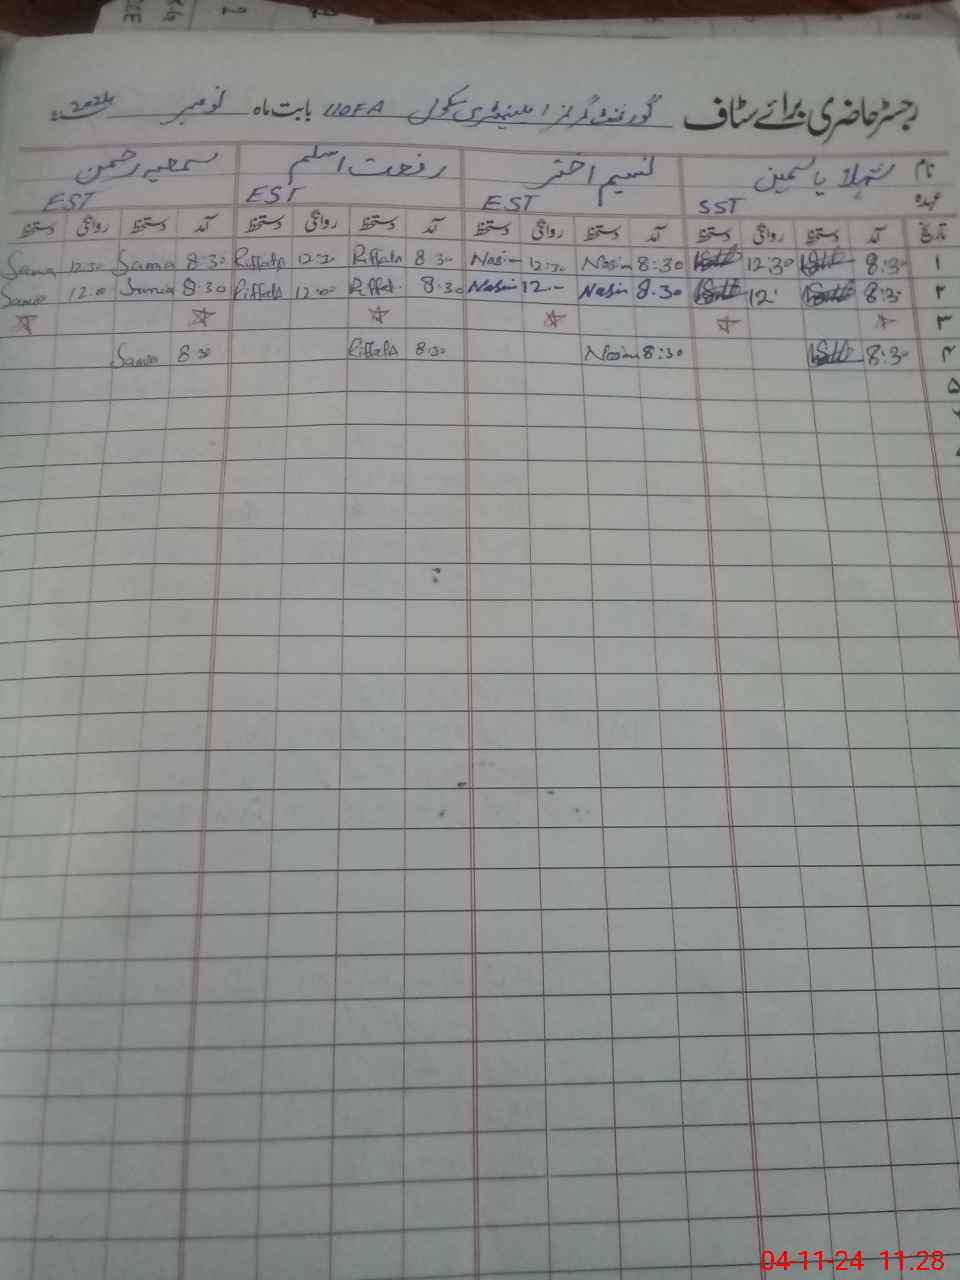 رجسٹر حاضری برائے سٹاف گورنمنٹ گرلز ایلیمنٹری سکول 110EA بابت ماہ نومبر 2024ء
نام شہلا یاسمین نسیم اختر رفعت اسلم سمعیہ رحمن
عہدہ SST EST EST EST
تاریخ آمد دستخط روانگی دستخط آمد دستخط روانگی دستخط آمد دستخط روانگی دستخط آمد دستخط روانگی دستخط
۱ 8:30 12:30 8:30 Nasim 12:30 Nasim 8:30 Riffat 12:30 Riffat 8:30 Sama 12:30 Sama
۲ 8:30 12: 8:30 Nasim 12:- Nasim 8:30 Riffat 12:00 Riffat 8:30 Sama 12:0 Sama
۳
۴ 8:30 8:30 Nasim 8:30 Riffat 8:30 Sama
۵
04-11-24 11.28